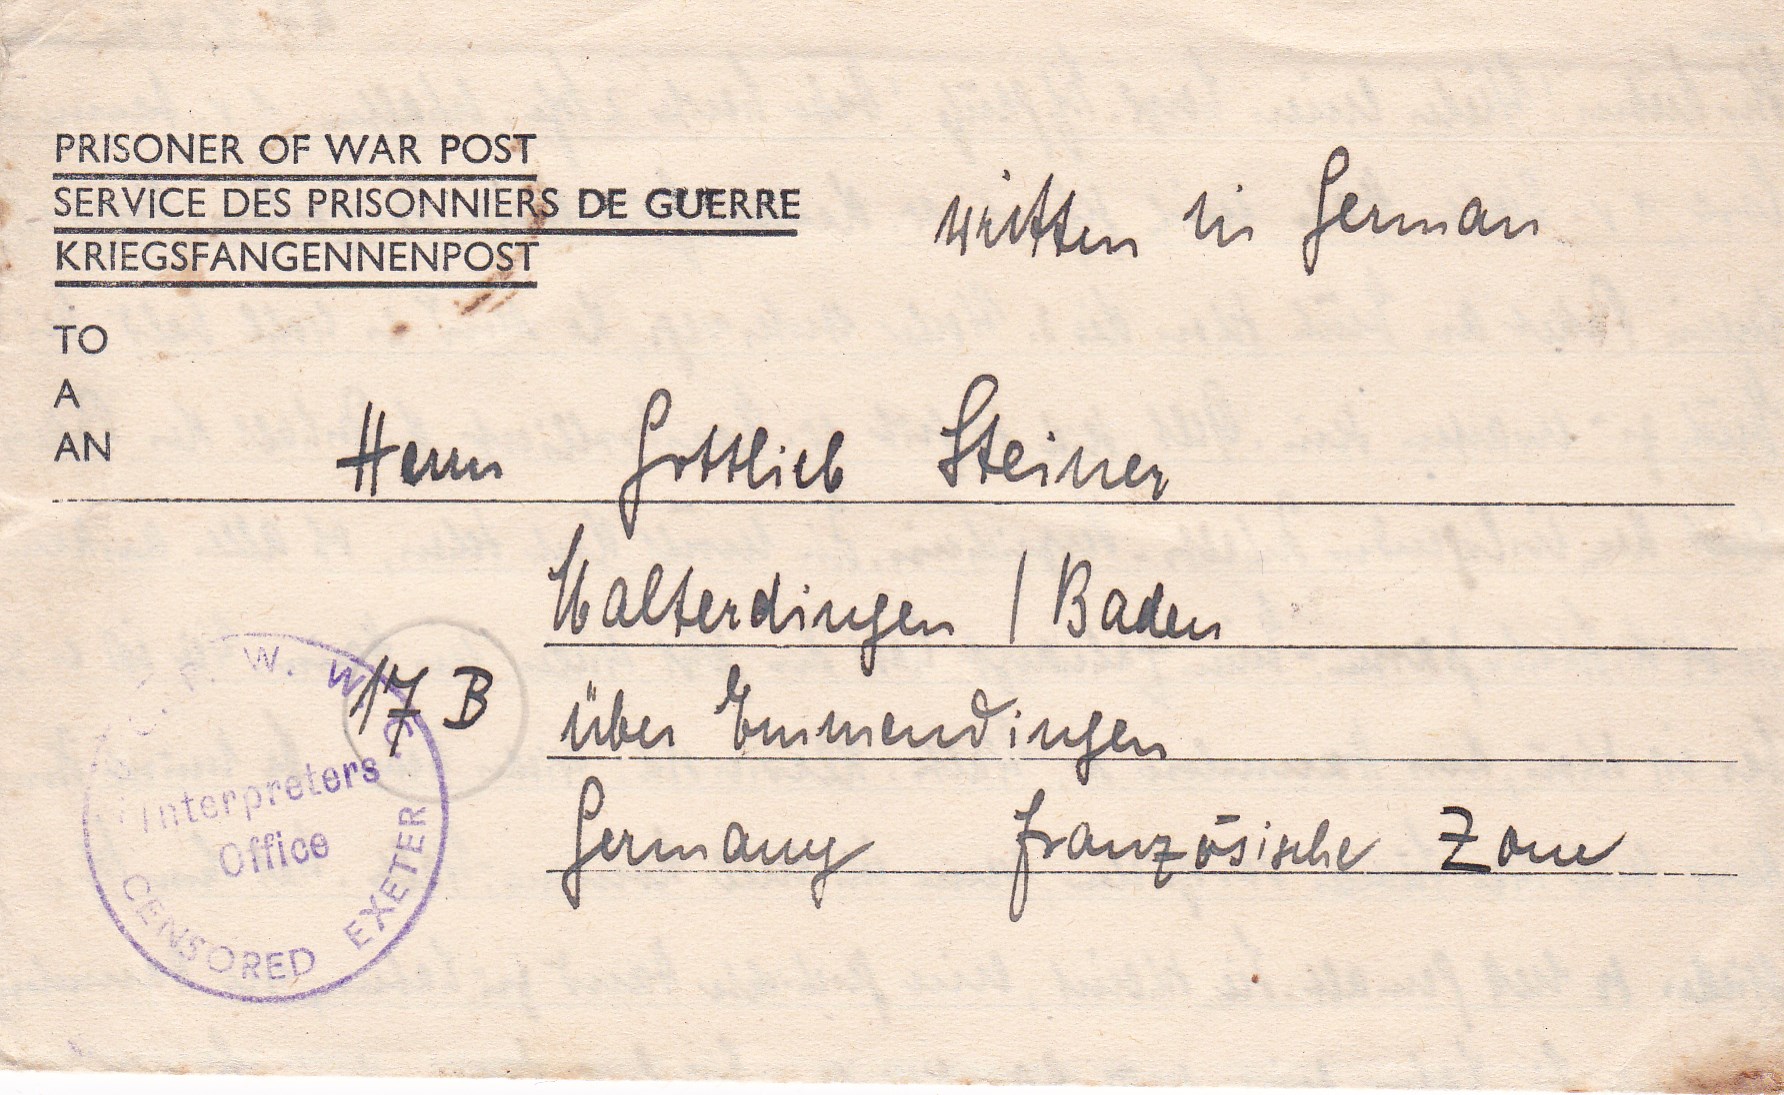 PRISONER OF WAR POST
SERVICE DES PRISONNIERS DE GUERRE
KRIEGSFANGENNENPOST
written in German
TO
A
AN
Herrn Gottlieb Steiner
Malterdingen / Baden
17 B
über Emmendingen
Germany französische Zone
W. W.
Interpreters
Office
CENSORED EXETER